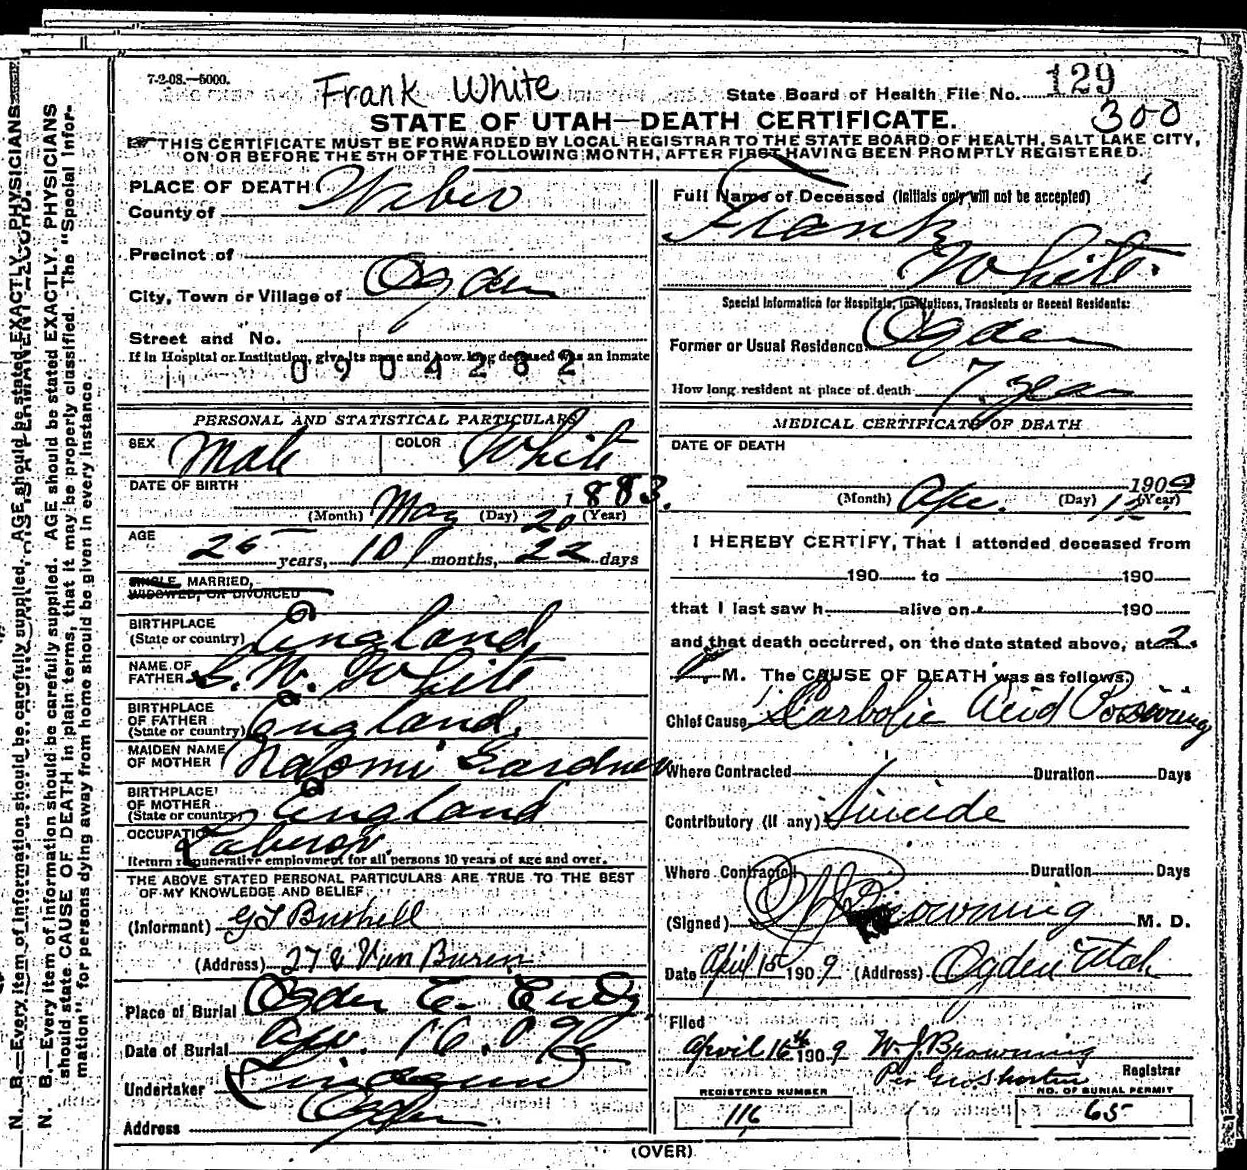 7-2-08.—5000.
Frank White
State Board of Health File No. 129
300
STATE OF UTAH—DEATH CERTIFICATE.
THIS CERTIFICATE MUST BE FORWARDED BY LOCAL REGISTRAR TO THE STATE BOARD OF HEALTH, SALT LAKE CITY,
ON OR BEFORE THE 5TH OF THE FOLLOWING MONTH, AFTER FIRST HAVING BEEN PROMPTLY REGISTERED.
PLACE OF DEATH
County of Weber
Precinct of
City, Town or Village of Ogden
Street and No.
If in Hospital or Institution, give its name and how long deceased was an inmate
0904282
PERSONAL AND STATISTICAL PARTICULARS
SEX Male COLOR White
DATE OF BIRTH
1883.
(Month) May (Day) 20 (Year)
AGE
25 years, 10 months, 22 days
SINGLE, MARRIED,
WIDOWED, OR DIVORCED
BIRTHPLACE
(State or country) England
NAME OF
FATHER S. W. White
BIRTHPLACE
OF FATHER
(State or country) England
MAIDEN NAME
OF MOTHER Naomi Gardner
BIRTHPLACE
OF MOTHER
(State or country) England
OCCUPATION Laborer
Return remunerative employment for all persons 10 years of age and over.
THE ABOVE STATED PERSONAL PARTICULARS ARE TRUE TO THE BEST
OF MY KNOWLEDGE AND BELIEF
(Informant) Bushell
(Address) Van Buren
Place of Burial Ogden
Date of Burial Apr. 16. 09
Undertaker
Address Ogden
Full Name of Deceased (Initials only will not be accepted)
Frank
White.
Special Information for Hospitals, Institutions, Transients or Recent Residents:
Former or Usual Residence Ogden
How long resident at place of death 7 years
MEDICAL CERTIFICATE OF DEATH
DATE OF DEATH
1909
(Month) Apr. (Day) 15 (Year)
I HEREBY CERTIFY, That I attended deceased from
190 to 190
that I last saw h alive on 190
and that death occurred, on the date stated above, at 2.
P. M. The CAUSE OF DEATH was as follows:
Chief Cause Carbolic Acid Poisoning
Where Contracted Duration Days
Contributory (if any) Suicide
Where Contracted Duration Days
(Signed) Browning M. D.
Date April 15 1909 (Address) Ogden Utah
Filed
April 16th 1909 W. J. Browning
Registrar
Per
REGISTERED NUMBER
116
NO. OF BURIAL PERMIT
65
(OVER)
N. B.—Every item of information should be carefully supplied. AGE should be stated EXACTLY. PHYSICIANS
should state CAUSE OF DEATH in plain terms, that it may be properly classified. The "Special Infor-
mation" for persons dying away from home should be given in every instance.